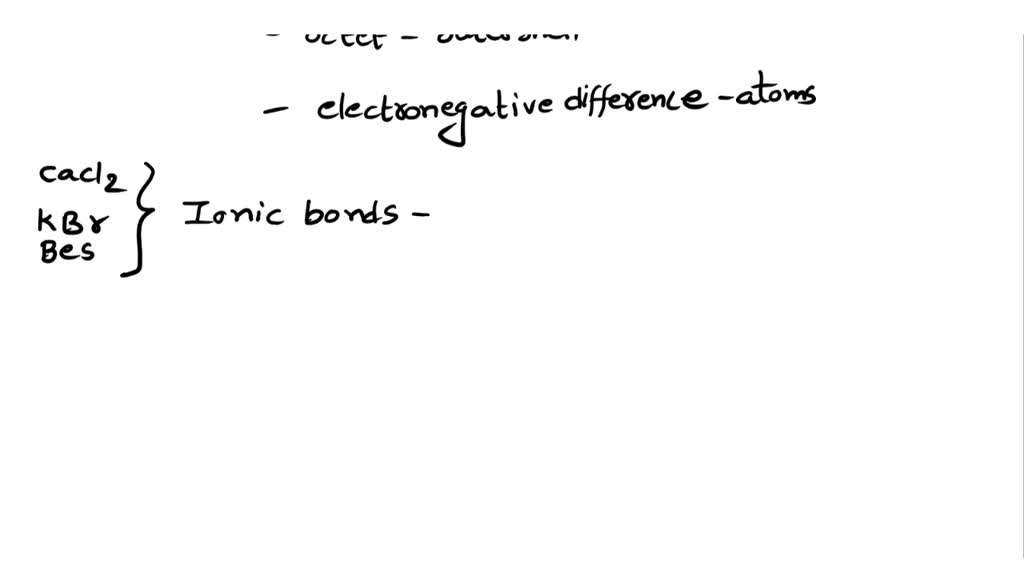 - electronegative difference - atoms
cacl2
KBr
Bes
Ionic bonds -